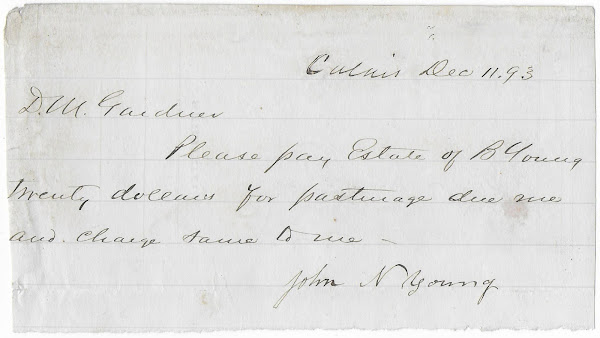 Calais Dec 11. 93
D. M. Gardner
Please pay Estate of B Young
twenty dollars for pasturage due me
and charge same to me –
John N Young